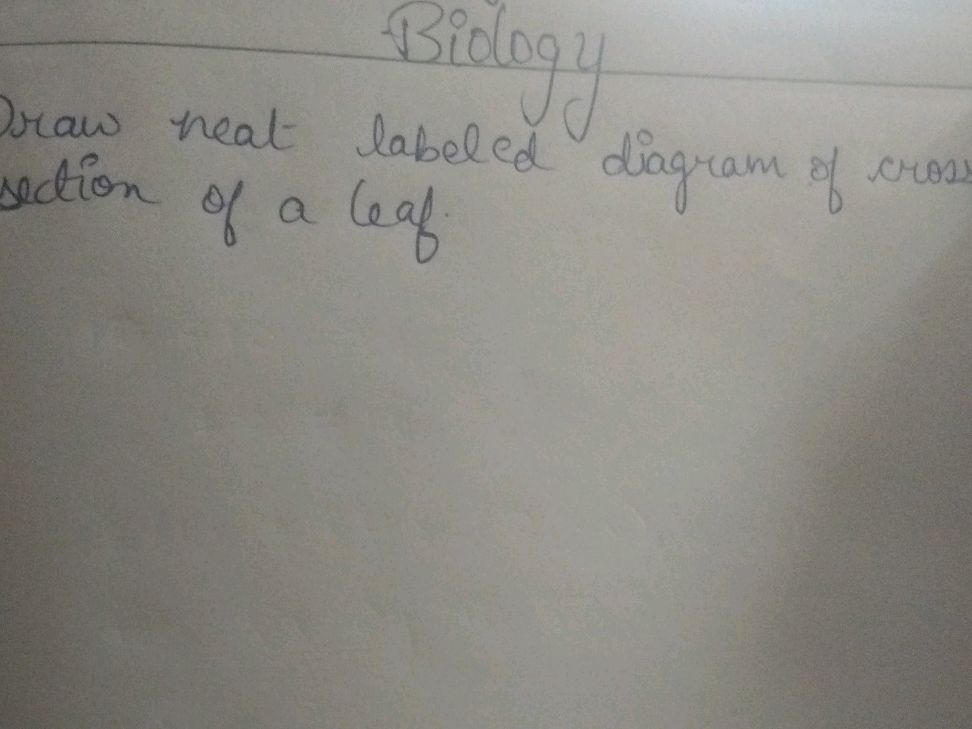 Biology
Draw neat labeled diagram of cross
section of a leaf.